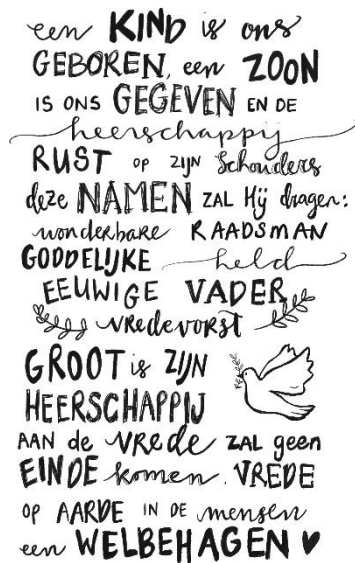 een KIND is ons
GEBOREN, een ZOON
IS ONS GEGEVEN EN DE
heerschappij
RUST OP ZIJN Schouders
deze NAMEN ZAL Hij dragen:
wonderbare RAADSMAN
GODDELIJKE held
EEUWIGE VADER
vredevorst
GROOT is ZIJN
HEERSCHAPPIJ
AAN de VREDE ZAL geen
EINDE komen. VREDE
OP AARDE IN DE mensen
een WELBEHAGEN